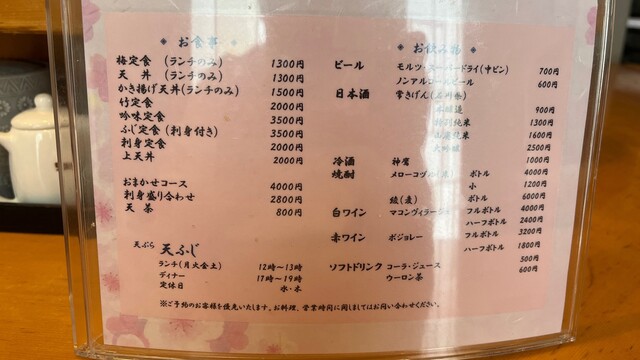 お食事
梅定食 (ランチのみ) 1300円
天 丼 (ランチのみ) 1300円
かき揚げ天丼(ランチのみ) 1500円
竹定食 2000円
吟味定食 3500円
ふじ定食(刺身付き) 3500円
刺身定食 2000円
上天丼 2000円
おまかせコース 4000円
刺身盛り合わせ 2800円
天 茶 800円
天ぷら 天ふじ
ランチ(月火金土) 12時〜13時
ディナー 17時〜19時
定休日 水・木
お飲み物
ビール モルツ・スーパードライ(中ビン) 700円
ノンアルコールビール 600円
日本酒 常きげん
900円
純米 1300円
純米 1600円
大吟醸 2500円
冷酒 神鷹 1000円
焼酎 メローコヅル ボトル 4000円
小 1200円
綾(麦) ボトル 6000円
白ワイン マコンヴィラージュ フルボトル 4000円
ハーフボトル 2400円
赤ワイン ボジョレー フルボトル 3200円
ハーフボトル 1800円
ソフトドリンク コーラ・ジュース 500円
ウーロン茶 600円
※ご予約のお客様を優先いたします。お料理、営業時間に関しましてはお問い合わせください。